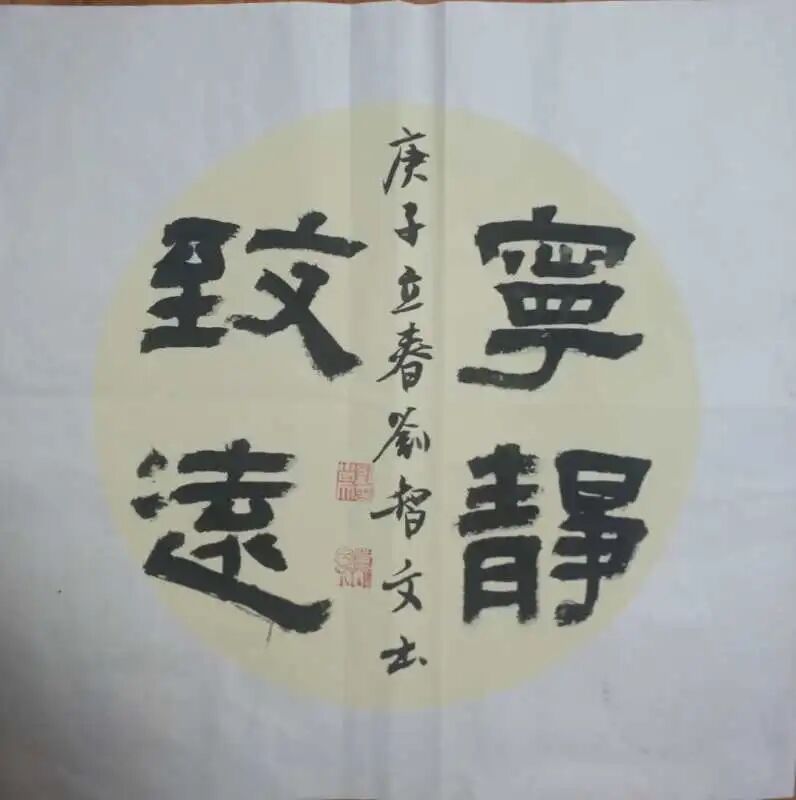 寧靜
致遠
庚子立春劉智文书